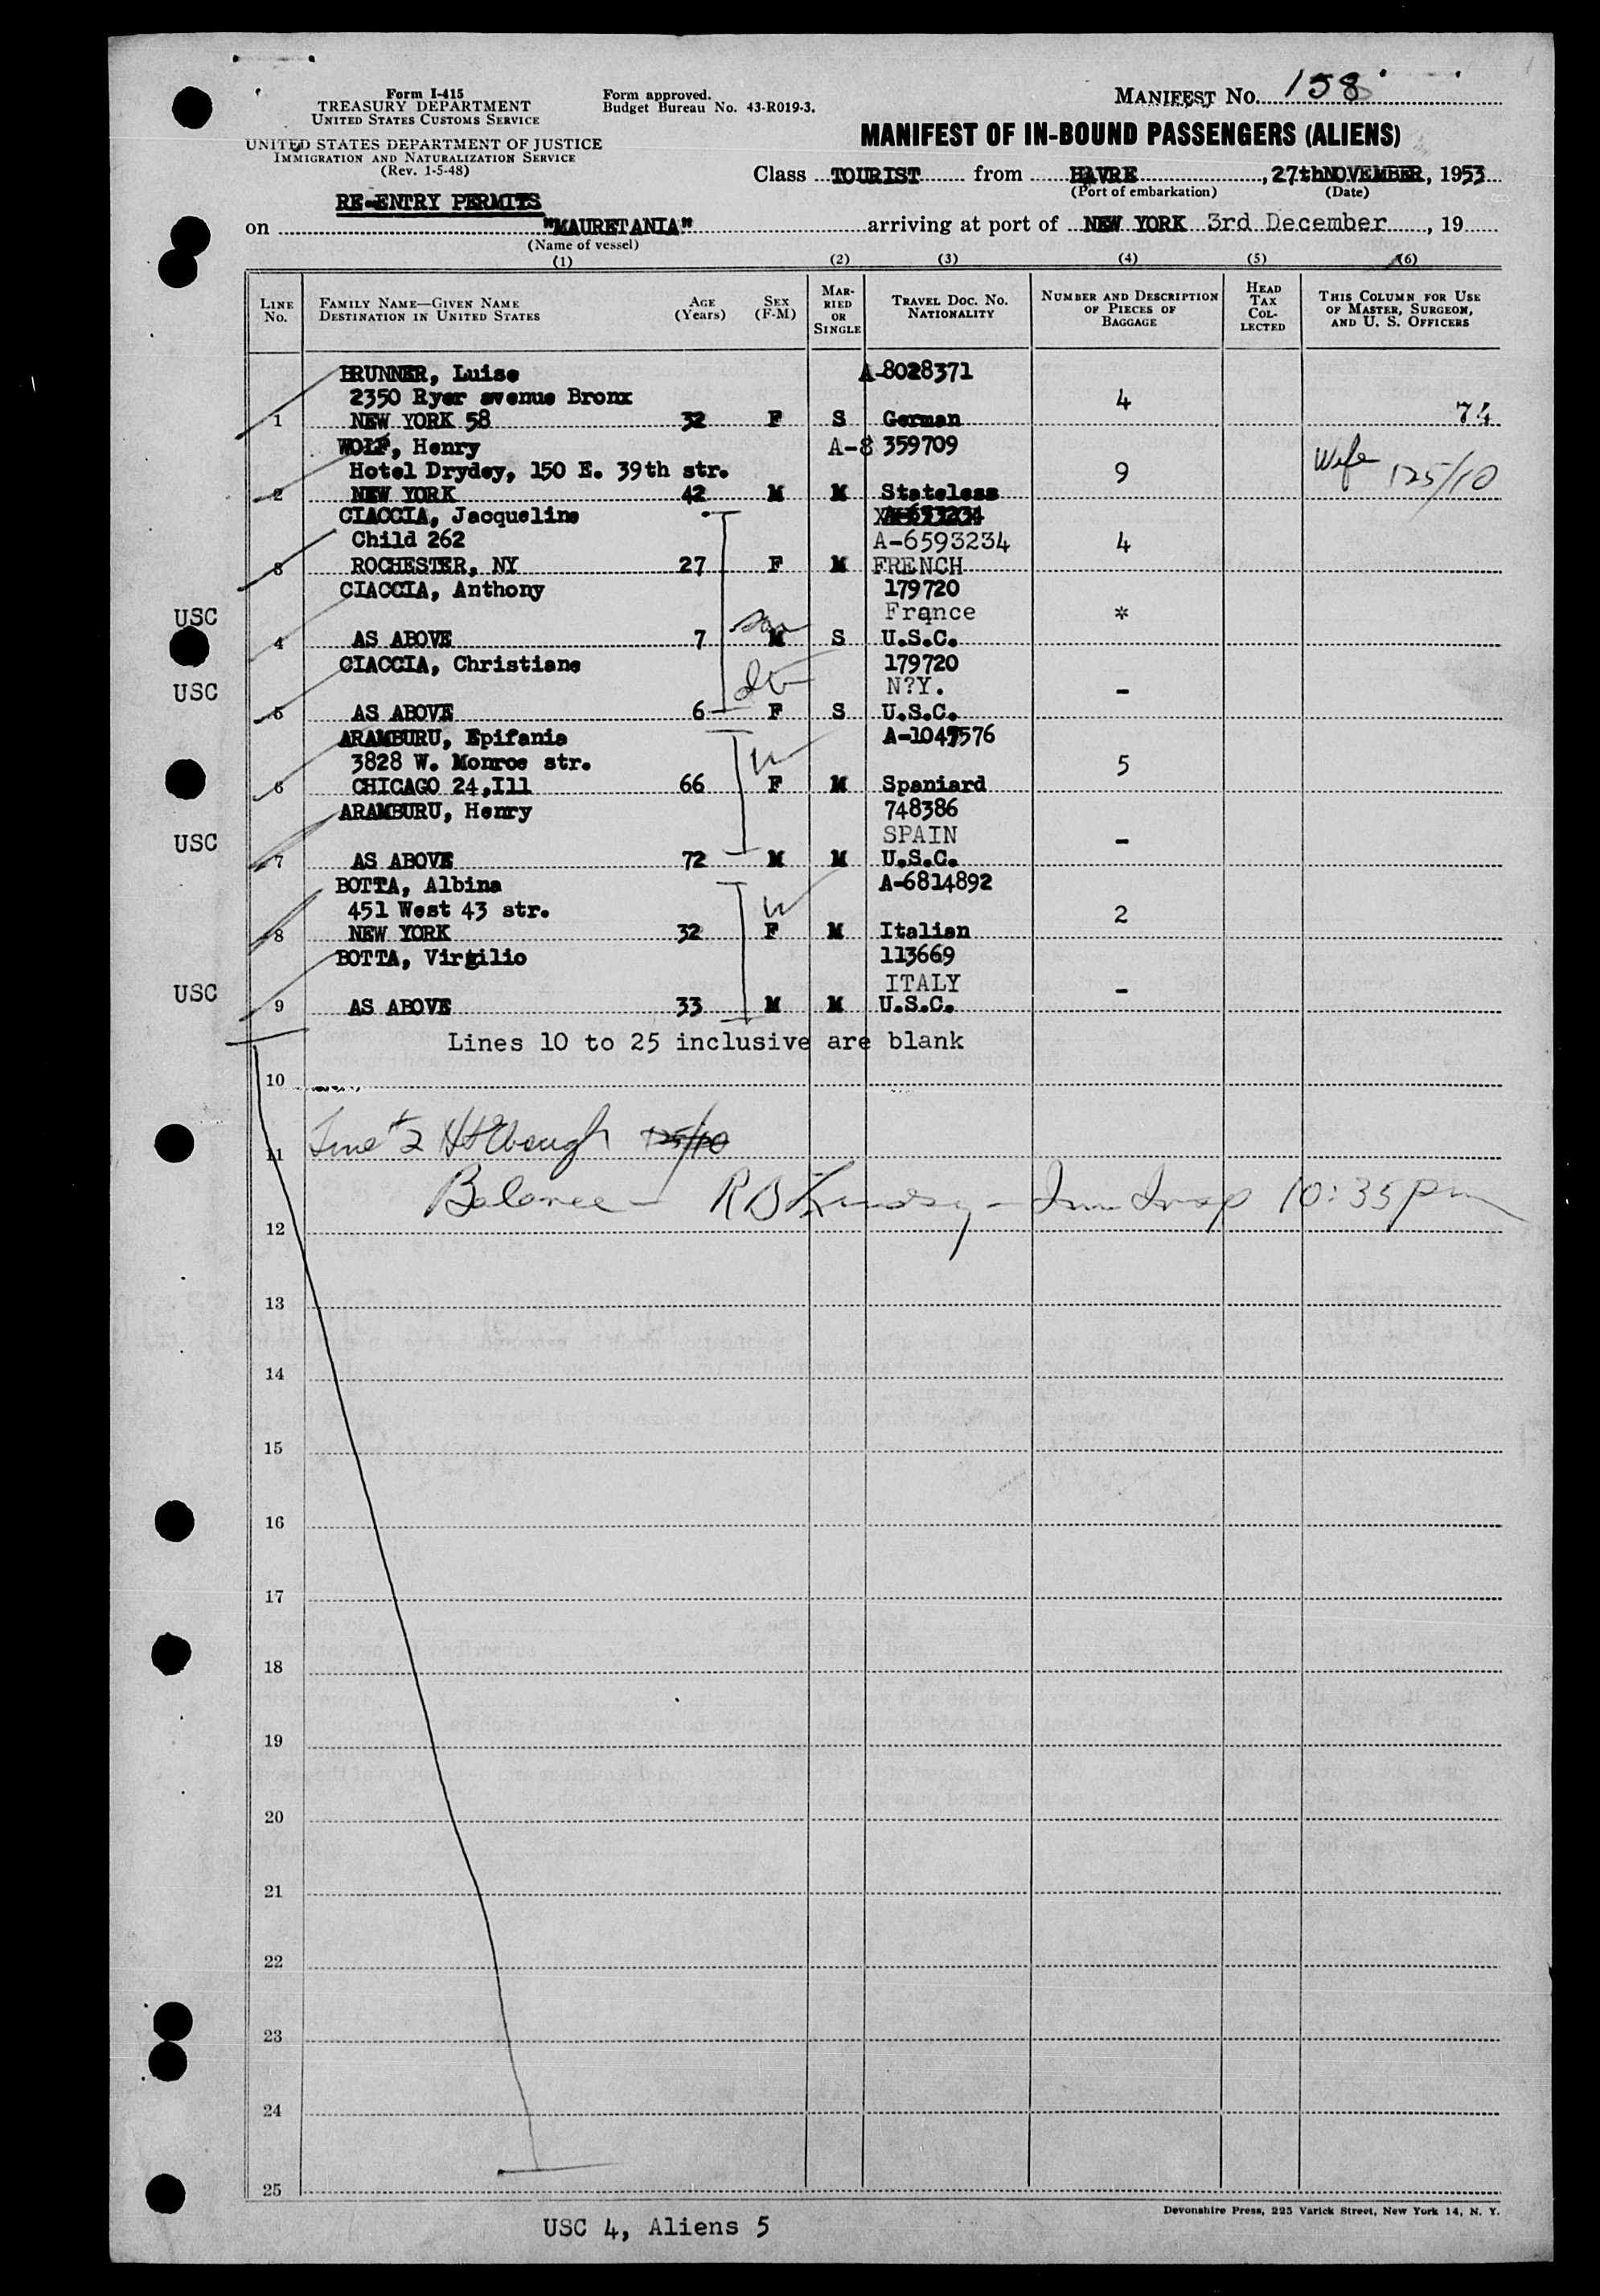 Form I-415
TREASURY DEPARTMENT
UNITED STATES CUSTOMS SERVICE
UNITED STATES DEPARTMENT OF JUSTICE
IMMIGRATION AND NATURALIZATION SERVICE
(Rev. 1-5-48)
Form approved.
Budget Bureau No. 43-R019-3.
MANIFEST No. 158
MANIFEST OF IN-BOUND PASSENGERS (ALIENS)
Class TOURIST from HAVRE, 27th NOVEMBER, 1953
(Port of embarkation) (Date)
RE-ENTRY PERMITS
on "MAURETANIA" arriving at port of NEW YORK 3rd December, 19
(Name of vessel)
(1) (2) (3) (4) (5) (6)
LINE No. FAMILY NAME—GIVEN NAME DESTINATION IN UNITED STATES AGE (Years) SEX (F-M) MARRIED OR SINGLE TRAVEL DOC. NO. NATIONALITY NUMBER AND DESCRIPTION OF PIECES OF BAGGAGE HEAD TAX COLLECTED THIS COLUMN FOR USE OF MASTER, SURGEON, AND U. S. OFFICERS
BRUNNER, Luise A-8028371
2350 Ryer avenue Bronx 4
1 NEW YORK 58 32 F S German 74
WOLF, Henry A-8 359709
Hotel Drydey, 150 E. 39th str. 9 Wife 125/10
2 NEW YORK 42 M M Stateless
CIACCIA, Jacqueline
Child 262 A-6593234 4
3 ROCHESTER, NY 27 F M FRENCH
CIACCIA, Anthony 179720
USC France *
4 AS ABOVE 7 M S U.S.C.
CIACCIA, Christiane 179720
USC N?Y. -
5 AS ABOVE 6 F S U.S.C.
ARAMBURU, Epifania A-1045576
3828 W. Monroe str. 5
6 CHICAGO 24,Ill 66 F M Spaniard
ARAMBURU, Henry 748386
USC SPAIN -
7 AS ABOVE 72 M M U.S.C.
BOTTA, Albina A-6814892
451 West 43 str. 2
8 NEW YORK 32 F M Italian
BOTTA, Virgilio 113669
USC ITALY -
9 AS ABOVE 33 M M U.S.C.
Lines 10 to 25 inclusive are blank
10
11 Line #2 125/10
Balance - R B Lindsay - Imm Insp 10:35 pm
12
13
14
15
16
17
18
19
20
21
22
23
24
25
Devonshire Press, 225 Varick Street, New York 14, N. Y.
USC 4, Aliens 5